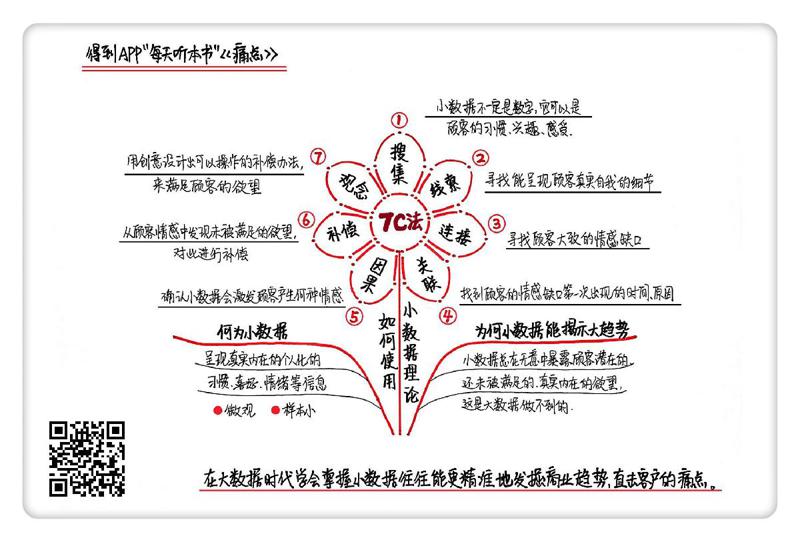 得到APP"每天听本书"《痛点》
小数据不一定是数字,它可以是
顾客的习惯、兴趣、感受.
① 搜集
② 线索
寻找能呈现顾客真实自我的细节
③ 连接
寻找顾客大致的情感缺口
④ 关联
找到顾客的情感缺口第一次出现的时间、原因
⑤ 因果
确认小数据会激发顾客产生何种情感
⑥ 补偿
从顾客情感中发现未被满足的欲望,
对此进行补偿
⑦ 观念
用创意设计出可以操作的补偿办法,
来满足顾客的欲望
7C法
如何使用
小数据理论
何为小数据
呈现真实内在的个化的
习惯、喜好、情绪等信息
微观
样本小
为何小数据能揭示大趋势
小数据总在无意中暴露顾客潜在的
还未被满足的、真实内在的欲望,
这是大数据做不到的.
在大数据时代学会掌握小数据往往能更精准地发掘商业趋势,直击客户的痛点。